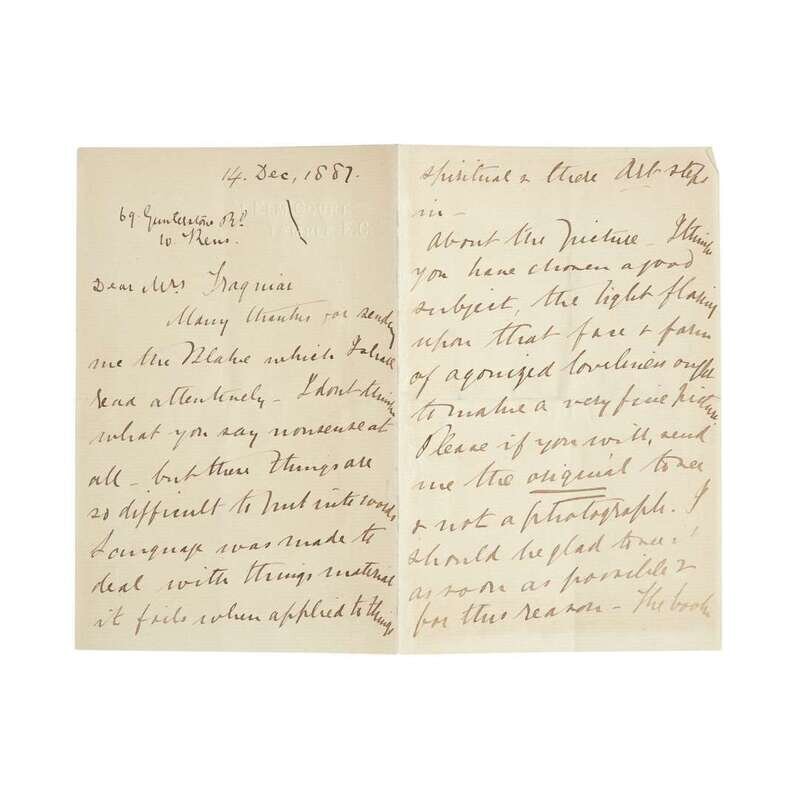 14. Dec, 1887.
69 Gunterstone Rd.
W. Kens.
COURT
TEMPLE E.C
Dear Mrs
Many thanks for sending
me the Blake which I shall
read attentively – I dont think
what you say nonsense at
all – but these things are
so difficult to put into words
Language was made to
deal with things material
it fails when applied to things
spiritual & there Art steps
in –
About the Picture – I think
you have chosen a good
subject, the light flaring
upon that face & form
of agonized loveliness ought
to make a very fine picture
Please if you will, send
me the original to see
& not a photograph. I
should be glad to see it
as soon as possible &
for this reason – The book